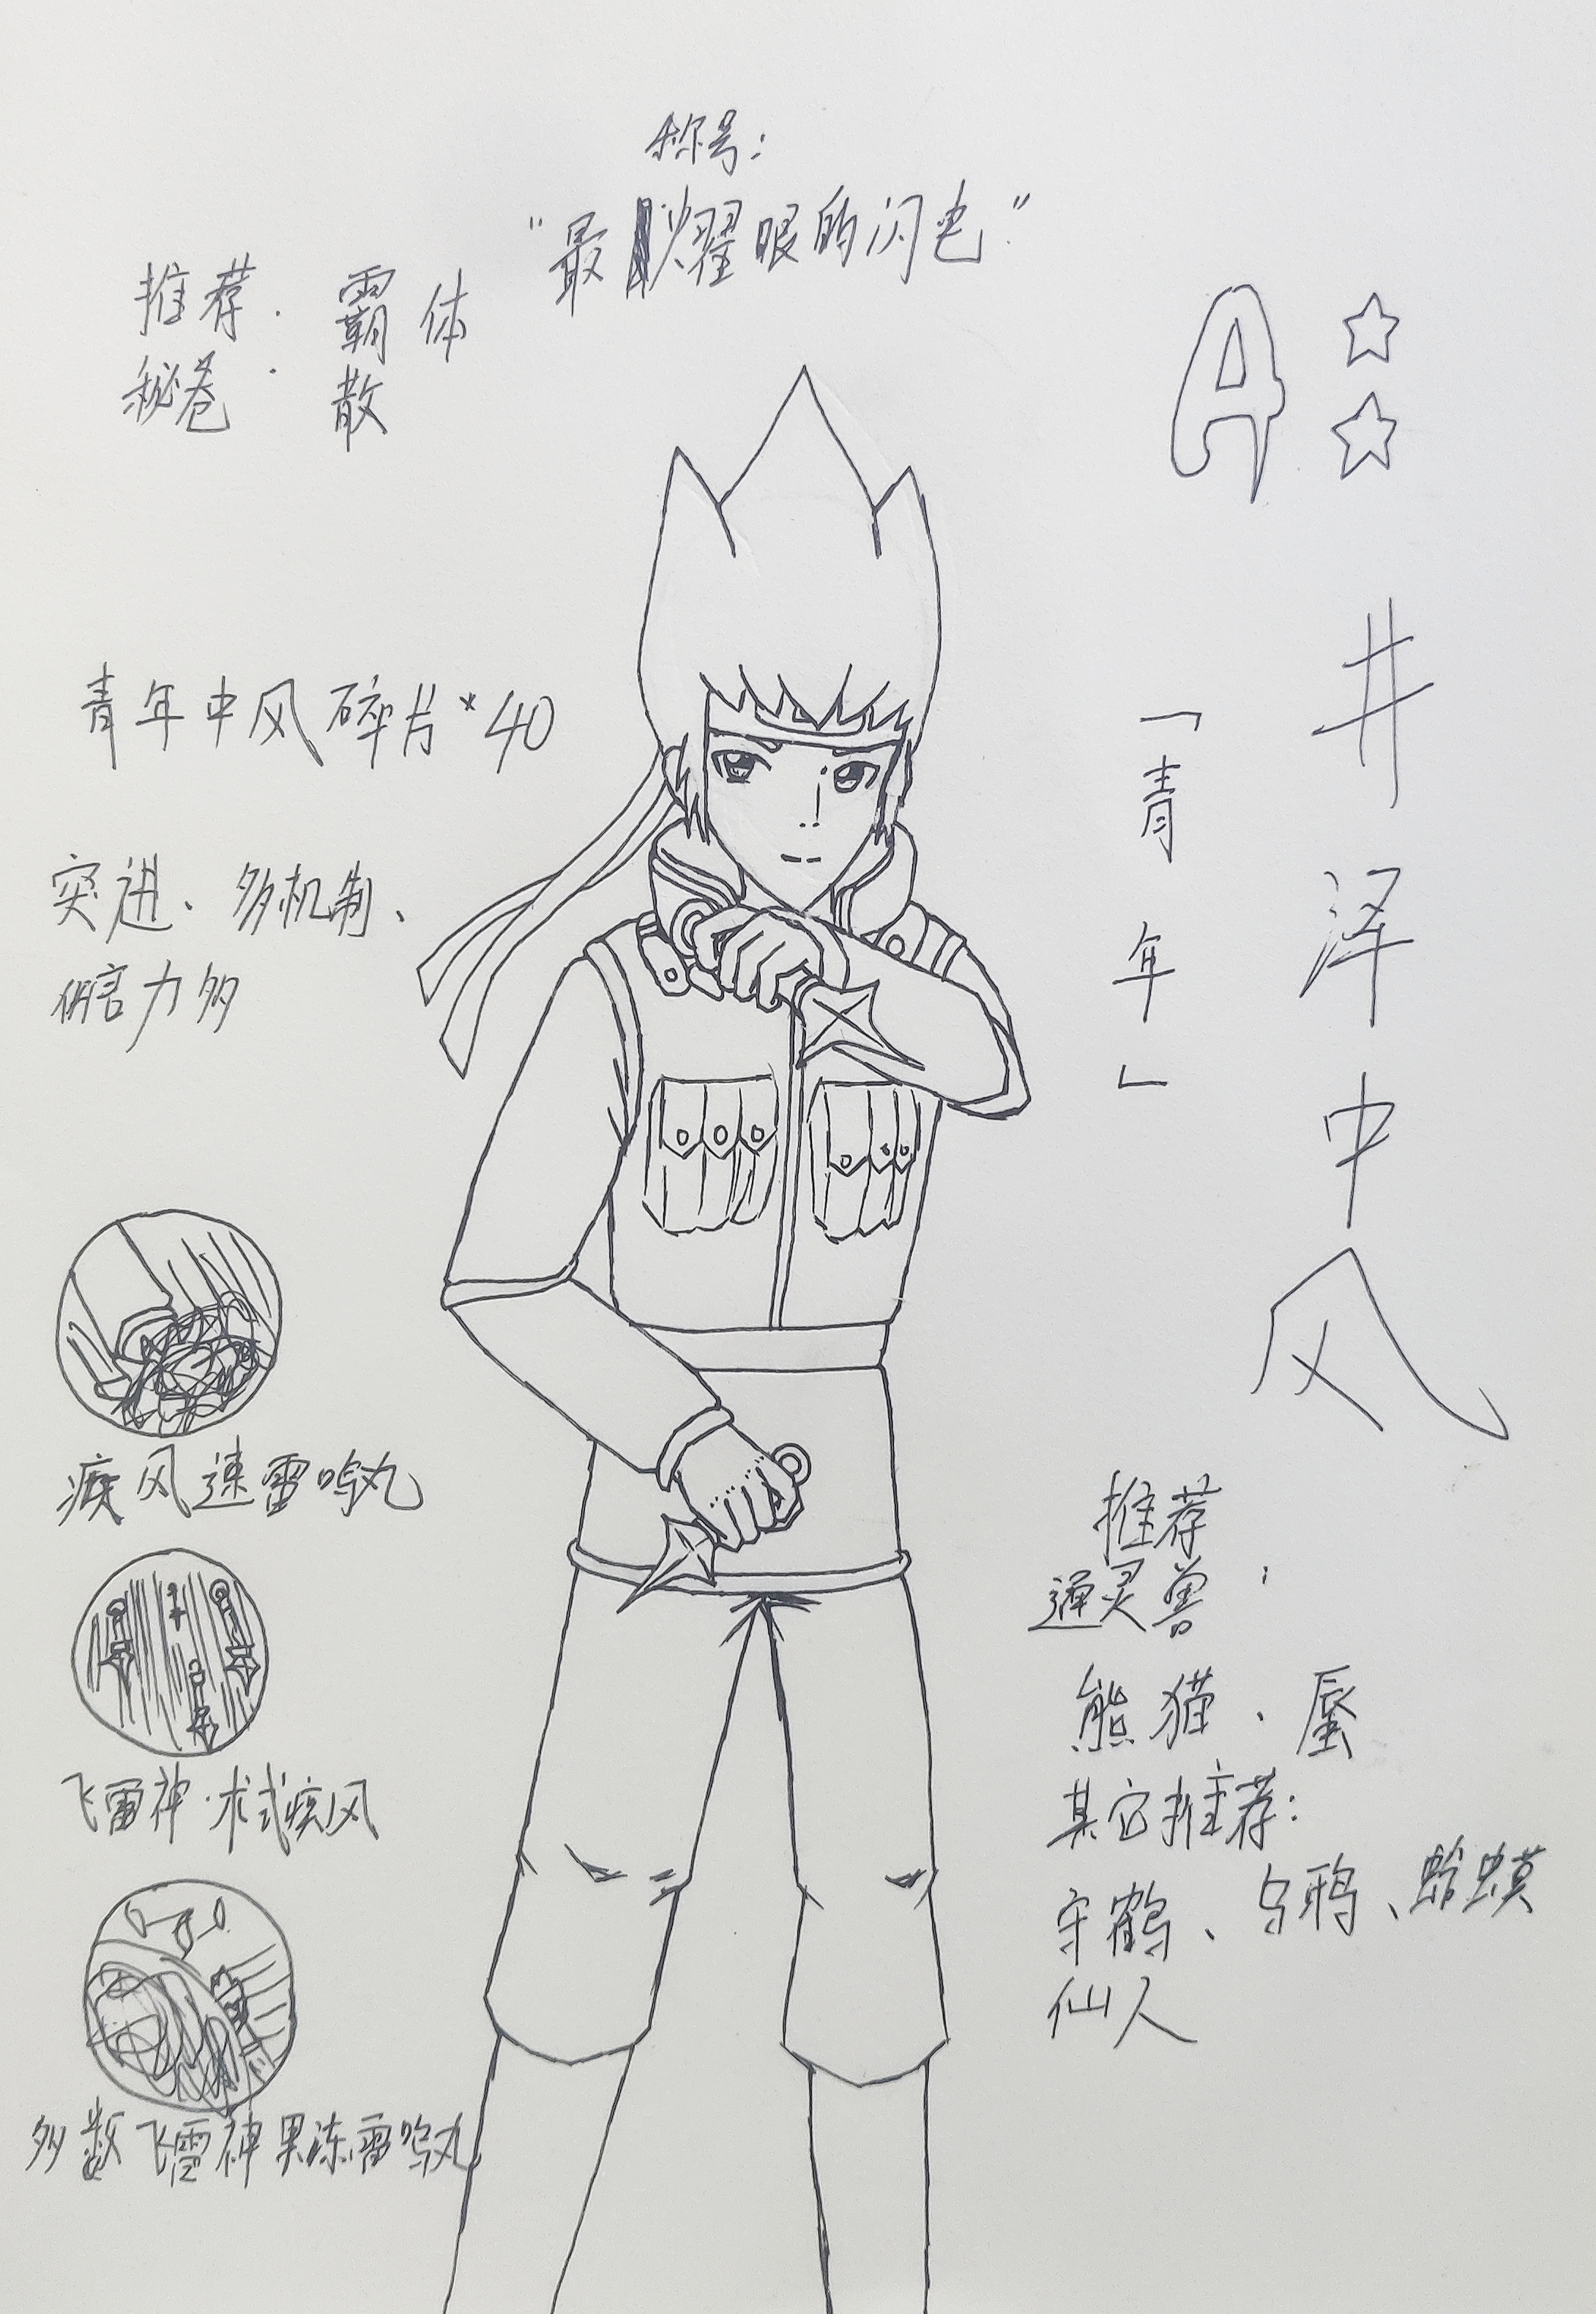 称号：
“最耀眼的闪电”
推荐：霸体
秘卷：散
A
井泽中风
「青年」
青年中风碎片*40
突进、多机制、
伤害力多
疾风速雷鸣丸
飞雷神·术式疾风
多数飞雷神果冻雷鸣丸
推荐
通灵兽：
熊猫、蜃
其它推荐：
守鹤、乌鸦、蛤蟆
仙人